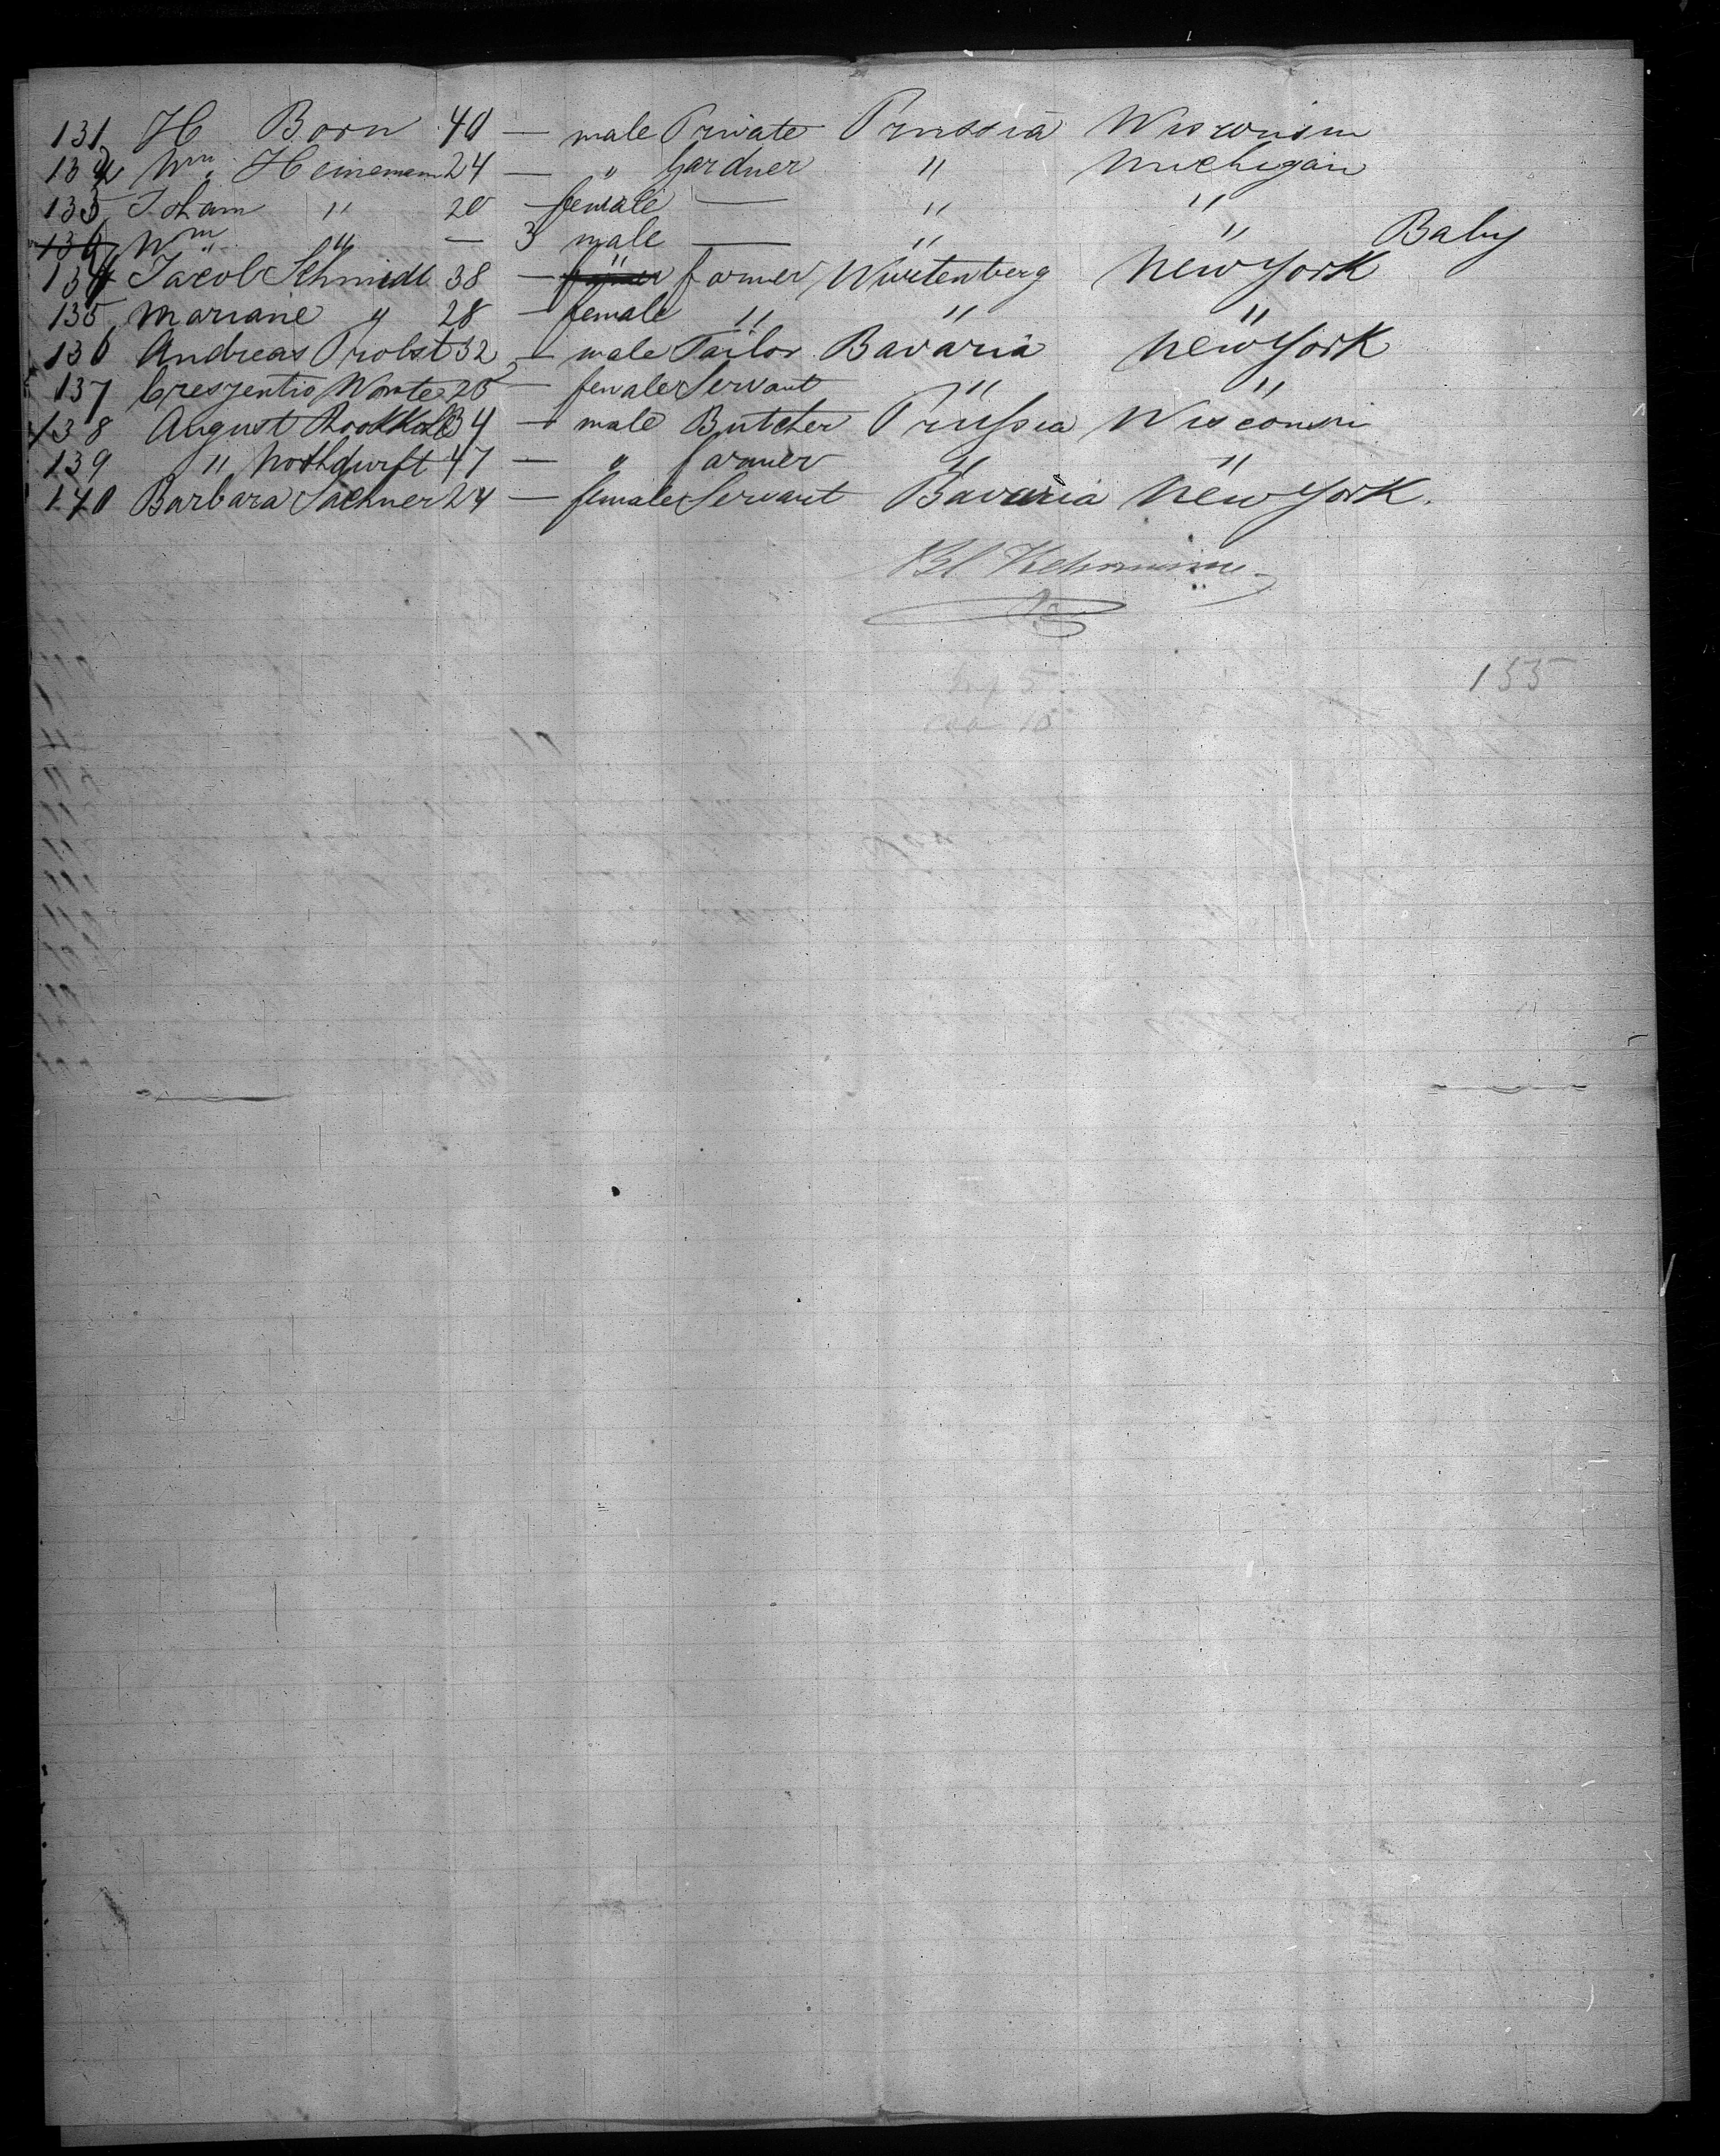 131 H Born 40 — male Private Prussia Wisconsin
132 Wm. Heinemann 24 — " Gardner " Michigan
133 " 20 — female — " "
Wm " — 3 male — " " Baby
134 Jacob Schmidt 38 — " farmer Wurtenberg New York
135 Mariane " 28 — female " " "
136 Andreas Probst 32 — male Tailor Bavaria New York
137 Creszentio 25 — female Servant " "
138 August 34 — male Butcher Prussia Wisconsin
139 " Nothdurft 47 — " farmer " "
140 Barbara Sachner 24 — female Servant Bavaria New York.
155